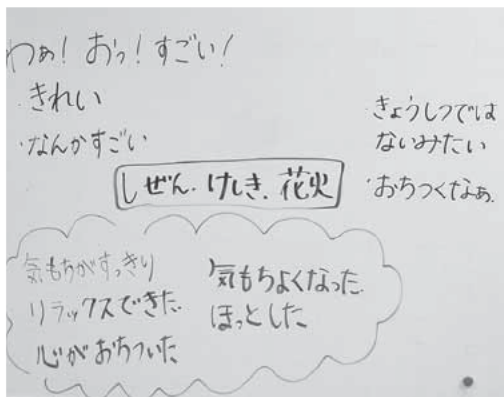 わぁ！おっ！すごい！
・きれい
・なんかすごい
・きょうしつでは
ないみたい
・おちつくなぁ。
しぜん．けしき．花火
気もちがすっきり
リラックスできた．
心がおちついた
気もちよくなった．
ほっとした